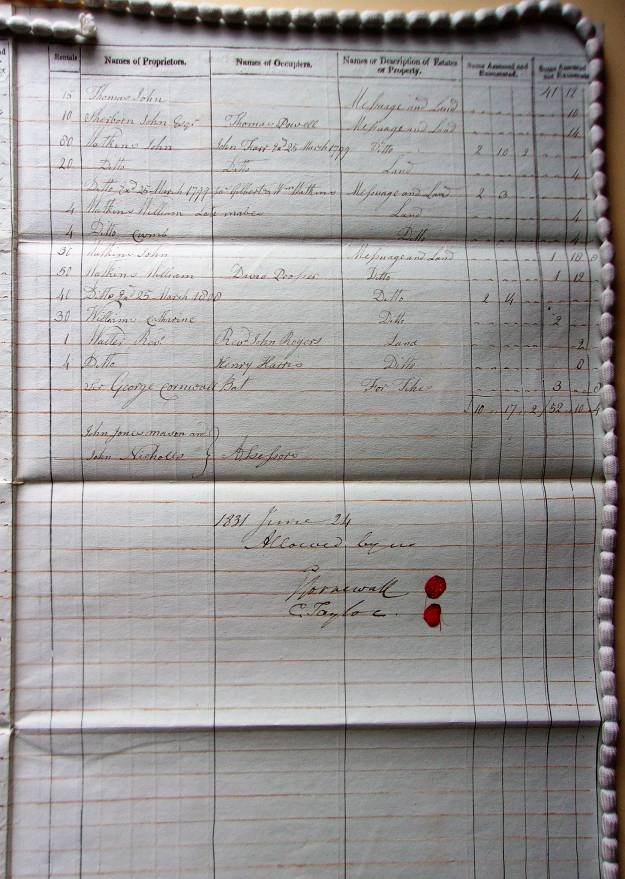 Rentals Names of Proprietors. Names of Occupiers. Names or Description of Estates or Property. Sums Assessed and Exonerated. Sums Assessed not Exonerated
41 12
15 Thomas John Messuage and Land 10
10 Sherborn John Esqr Thomas Powell Messuage and Land 14
60 Watkins John John Farr Exd 25 March 1799 Ditto 2 10
20 Ditto Ditto Land 4
Ditto Exd 25 March 1799 Gilbert & Wm Watkins Messuage and Land 2 3
4 Watkins William Late Land 4
4 Ditto Cwmb Ditto 4
36 Watkins John Messuage and Land 1 18
50 Watkins William David Prosser Ditto 1 12
40 Ditto Exd 25 March 1808 Ditto 2 4
30 William Ditto 2
1 Walter Revd Revd John Rogers Land 2
4 Ditto Henry Harris Ditto 8
Sir George Cornwall Bat For Tithe 3
£10 17 2 £52 10 4
John Jones mason and
John Nicholls } Assessors
1831 June 24
Allowed by us
G Cornewall
C Taylor